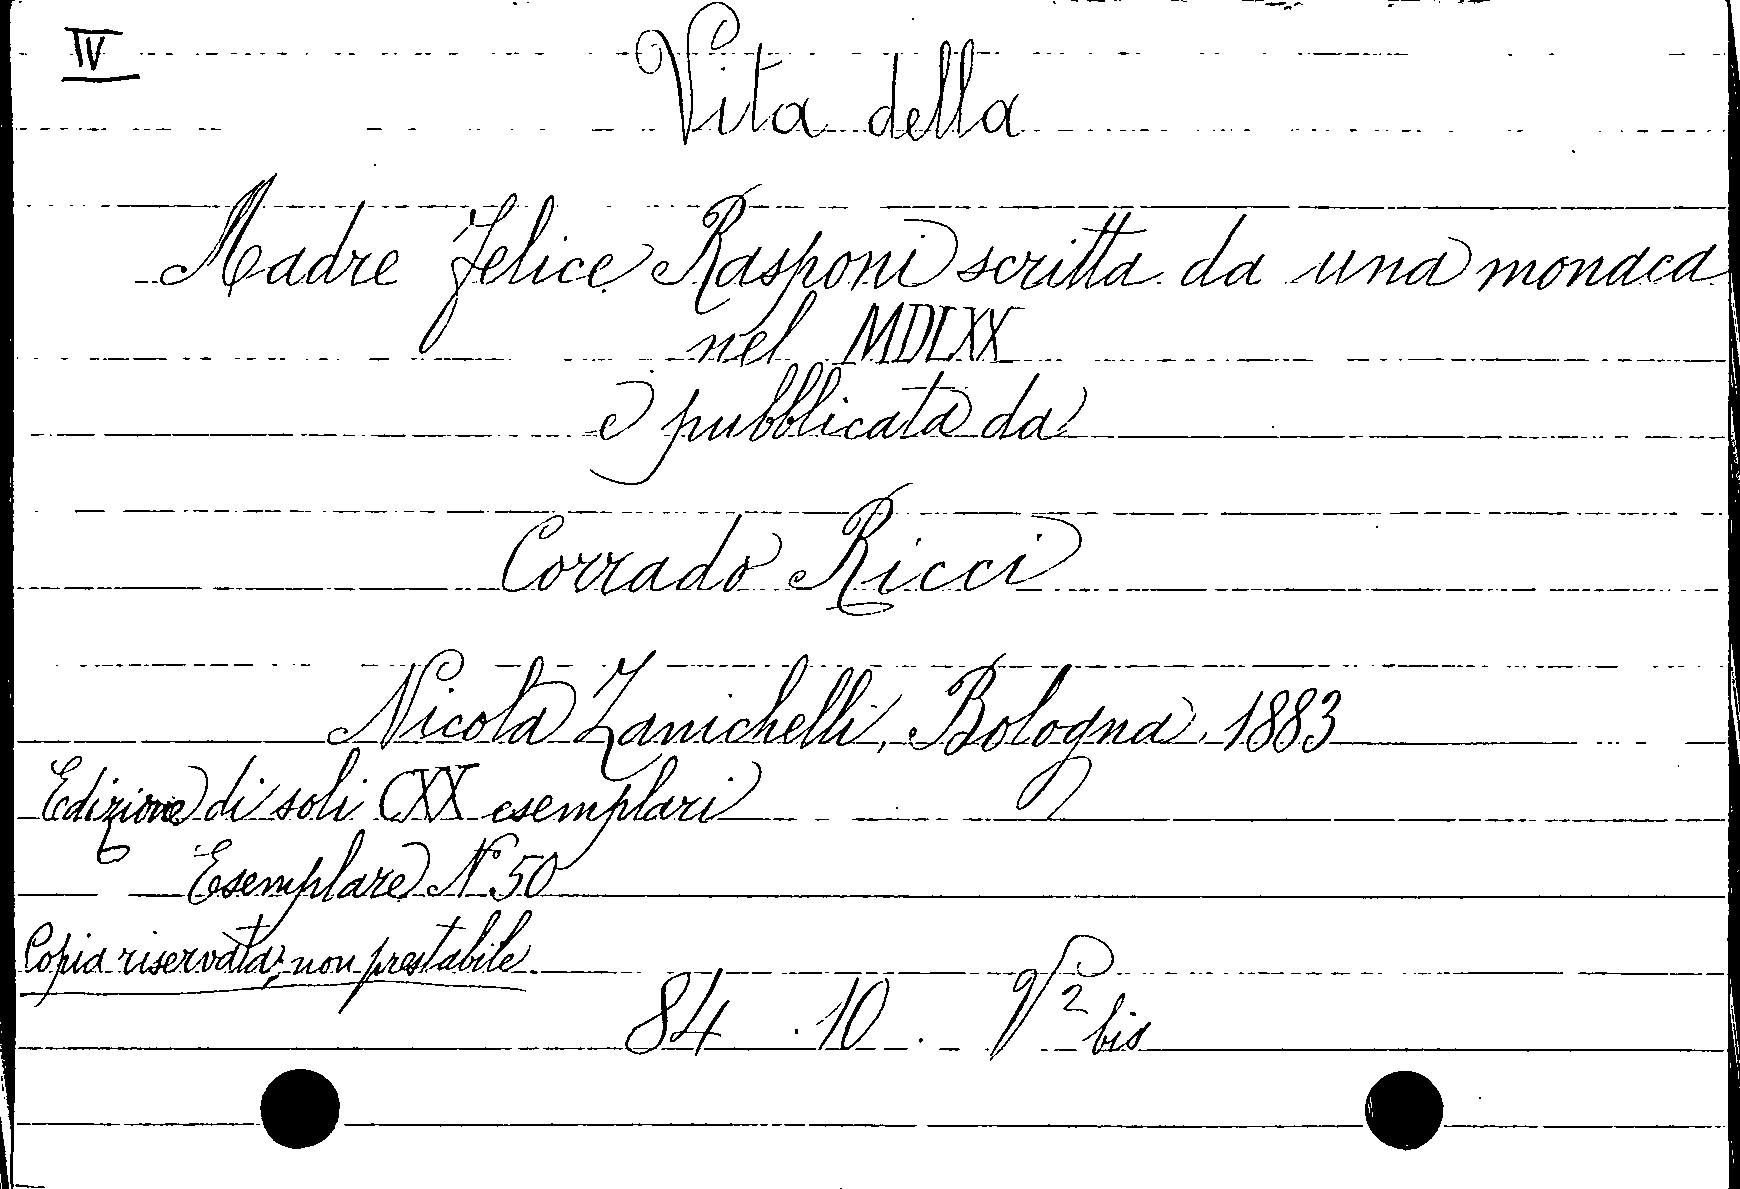 IV
Vita della
Madre Felice Rasponi scritta da una monaca
nel MDLXX
e pubblicata da
Corrado Ricci
Nicola Zanichelli, Bologna, 1883
Edizione di soli CXX esemplari
Esemplare N 50
Copia riservata, non prestabile
84 . 10 . V² bis